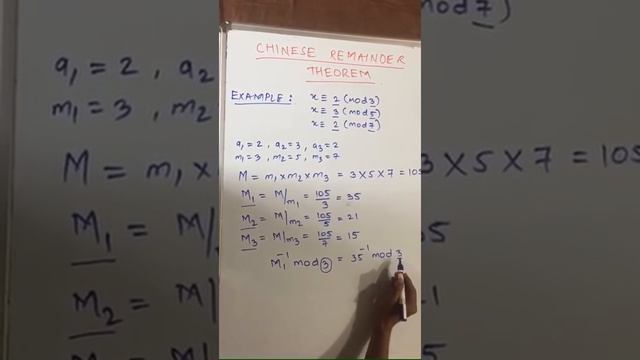 CHINESE REMAINDER
THEOREM
EXAMPLE : x ≡ 2 (mod 3)
x ≡ 3 (mod 5)
x ≡ 2 (mod 7)
a₁ = 2 , a₂ = 3 , a₃ = 2
m₁ = 3 , m₂ = 5 , m₃ = 7
M = m₁ x m₂ x m₃ = 3 X 5 X 7 = 105
M₁ = M/m₁ = 105/3 = 35
M₂ = M/m₂ = 105/5 = 21
M₃ = M/m₃ = 105/7 = 15
M₁⁻¹ mod 3 = 35⁻¹ mod 3